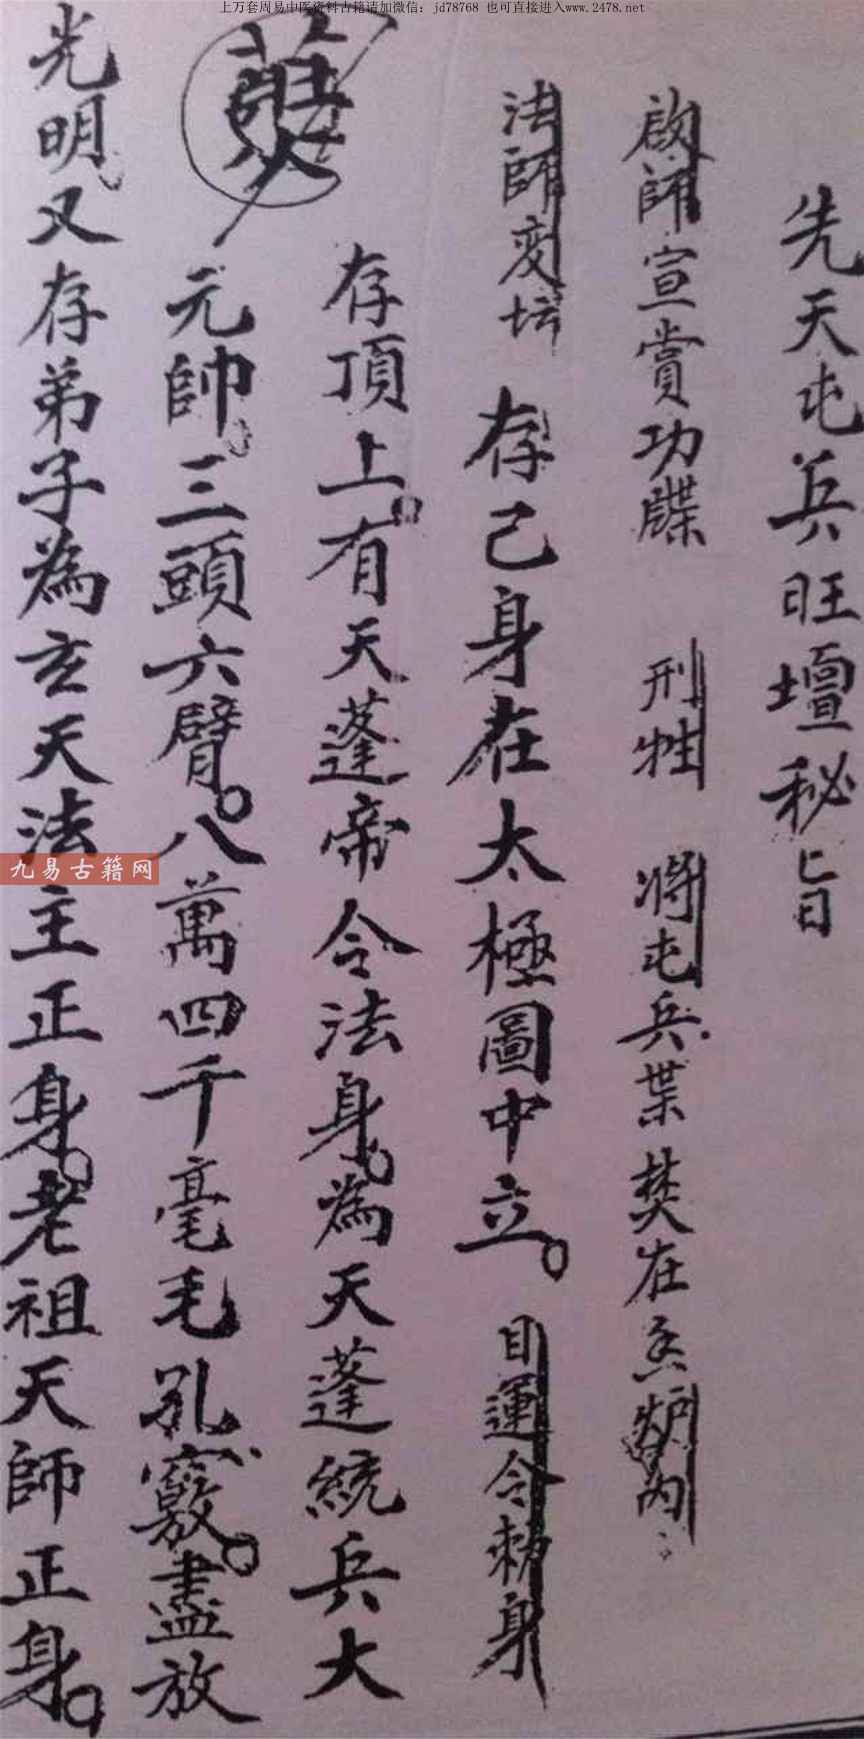 上万套周易中医资料古籍请加微信：jd78768 也可直接进入www.2478.net
先天屯兵旺壇秘旨
啟師宣賞功牒 刑牲 將屯兵葉焚在香炉內
法師变坛 存己身在太極圖中立。目運令勅身
存頂上。有天蓬帝令法身。為天蓬統兵大
元帥。三頭六臂。八萬四千毫毛孔竅。盡放
光明又存弟子為玄天法主正身。老祖天師正身。
九易古籍网